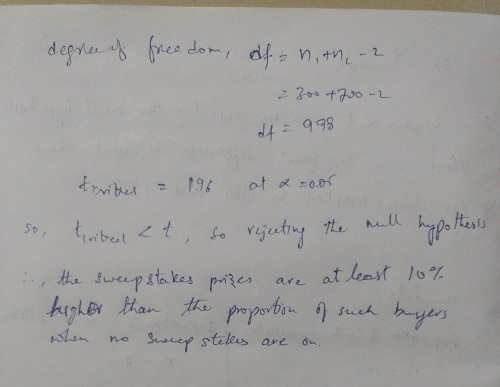 degree of freedom, df = n₁+n₂ -2
= 300 + 700 - 2
df = 998
tcritical = 1.96 at α = 0.05
so, tcritical < t, so rejecting the null hypothesis
∴, the sweepstakes prizes are at least 10%
higher than the proportion of such buyers
when no sweepstakes are on.